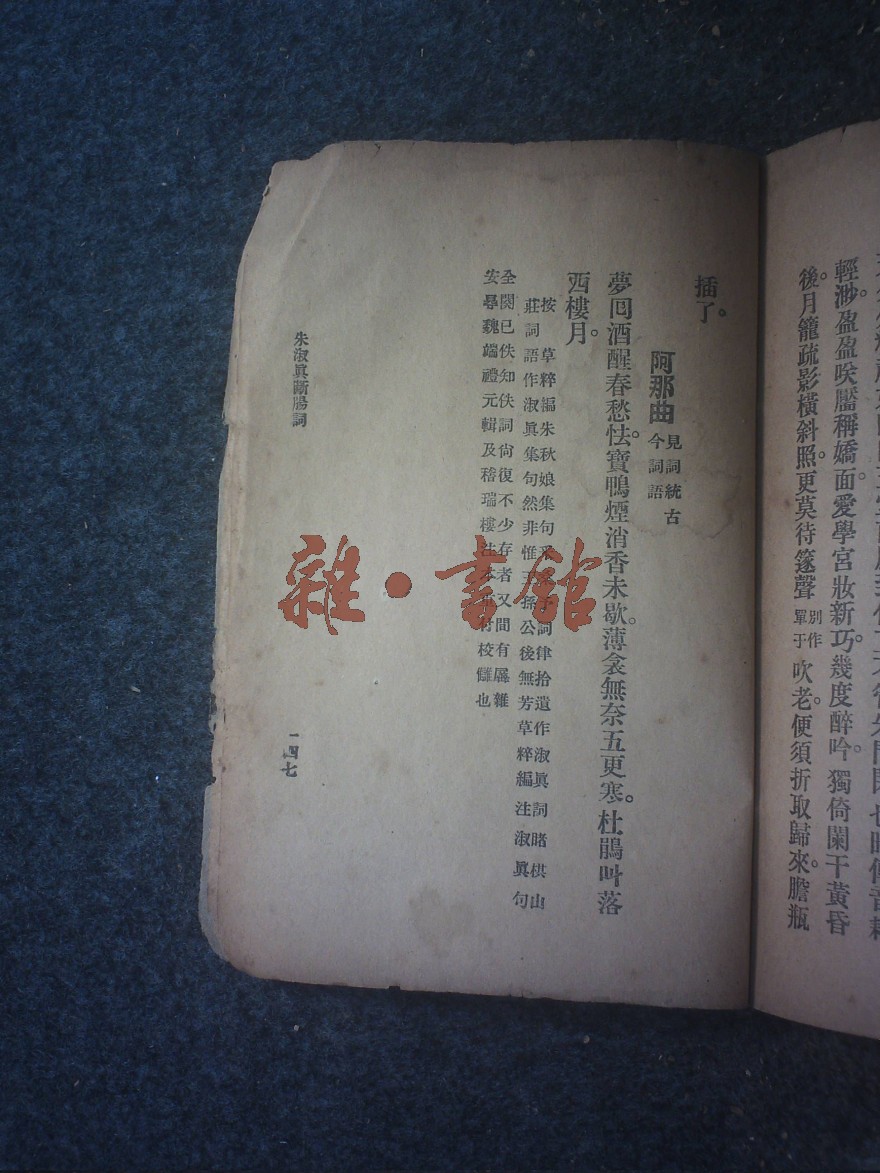 輕渺。盈盈咲靨稱嬌面。愛學宮妝新巧。幾度醉吟。獨倚闌干黃昏
後。月籠疏影橫斜照。更莫待篴聲別作單于吹老。便須折取歸來膽瓶
插了。
阿那曲見詞統古今詞語
夢囘酒醒春愁怯。寶鴨煙消香未歇。薄衾無奈五更寒。杜鵑叫落
西樓月。
按草粹編朱秋娘集句詞律拾遺作淑眞詞睹棋山
莊詞語作淑眞集句然非惟王孫公後無芳草粹編注淑眞句
全闋已佚知佚詞尙復不少存者又間有羼雜
安尋魏端禮元輯及稽瑞樓注本校讎也
朱淑眞斷腸詞
一四七
雜·書館